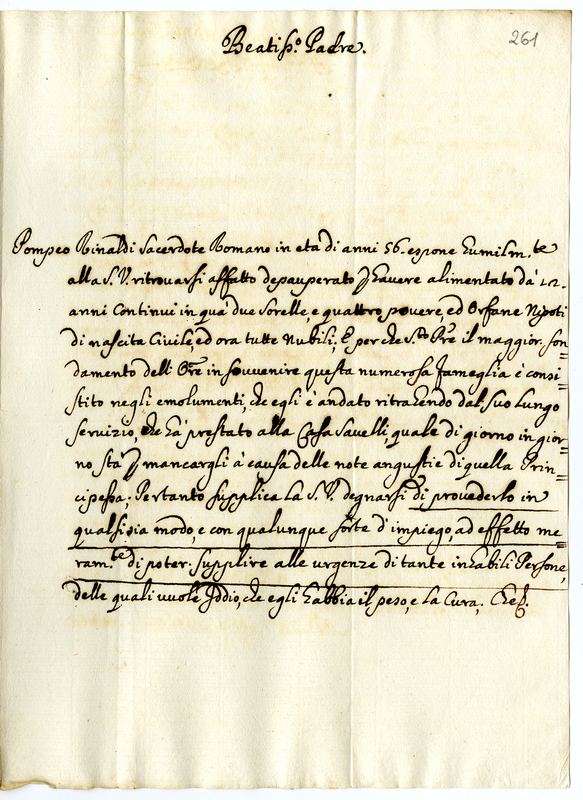 261
Beatiss.º Padre.
Pompeo Rinaldi Sacerdote Romano in età di anni 56. espone humilm.te
alla S. V. ritrovarsi affatto depauperato p havere alimentato da 12.
anni Continui in quà due Sorelle, e quattro povere, ed Orfane Nipoti
di nascita Civile, ed ora tutte Nubili; E perche S.to Pre il maggior. fon=
damento dell' Ore in sovvenire questa numerosa fameglia è consi=
stito negli emolumenti, che egli è andato ritraendo dal suo lungo
servizio, che hà prestato alla Casa Savelli, quale di giorno in gior=
no stà p mancargli à causa delle note angustie di quella Prin=
cipessa; Pertanto supplica la S. V. degnarsi di provederlo in
qualsisia modo, e con qualunque sorte d'impiego, ad effetto me=
ram.te di poter. supplire alle urgenze di tante inhabili Persone,
delle quali vuole Iddio, che egli habbia il peso, e la Cura. Che